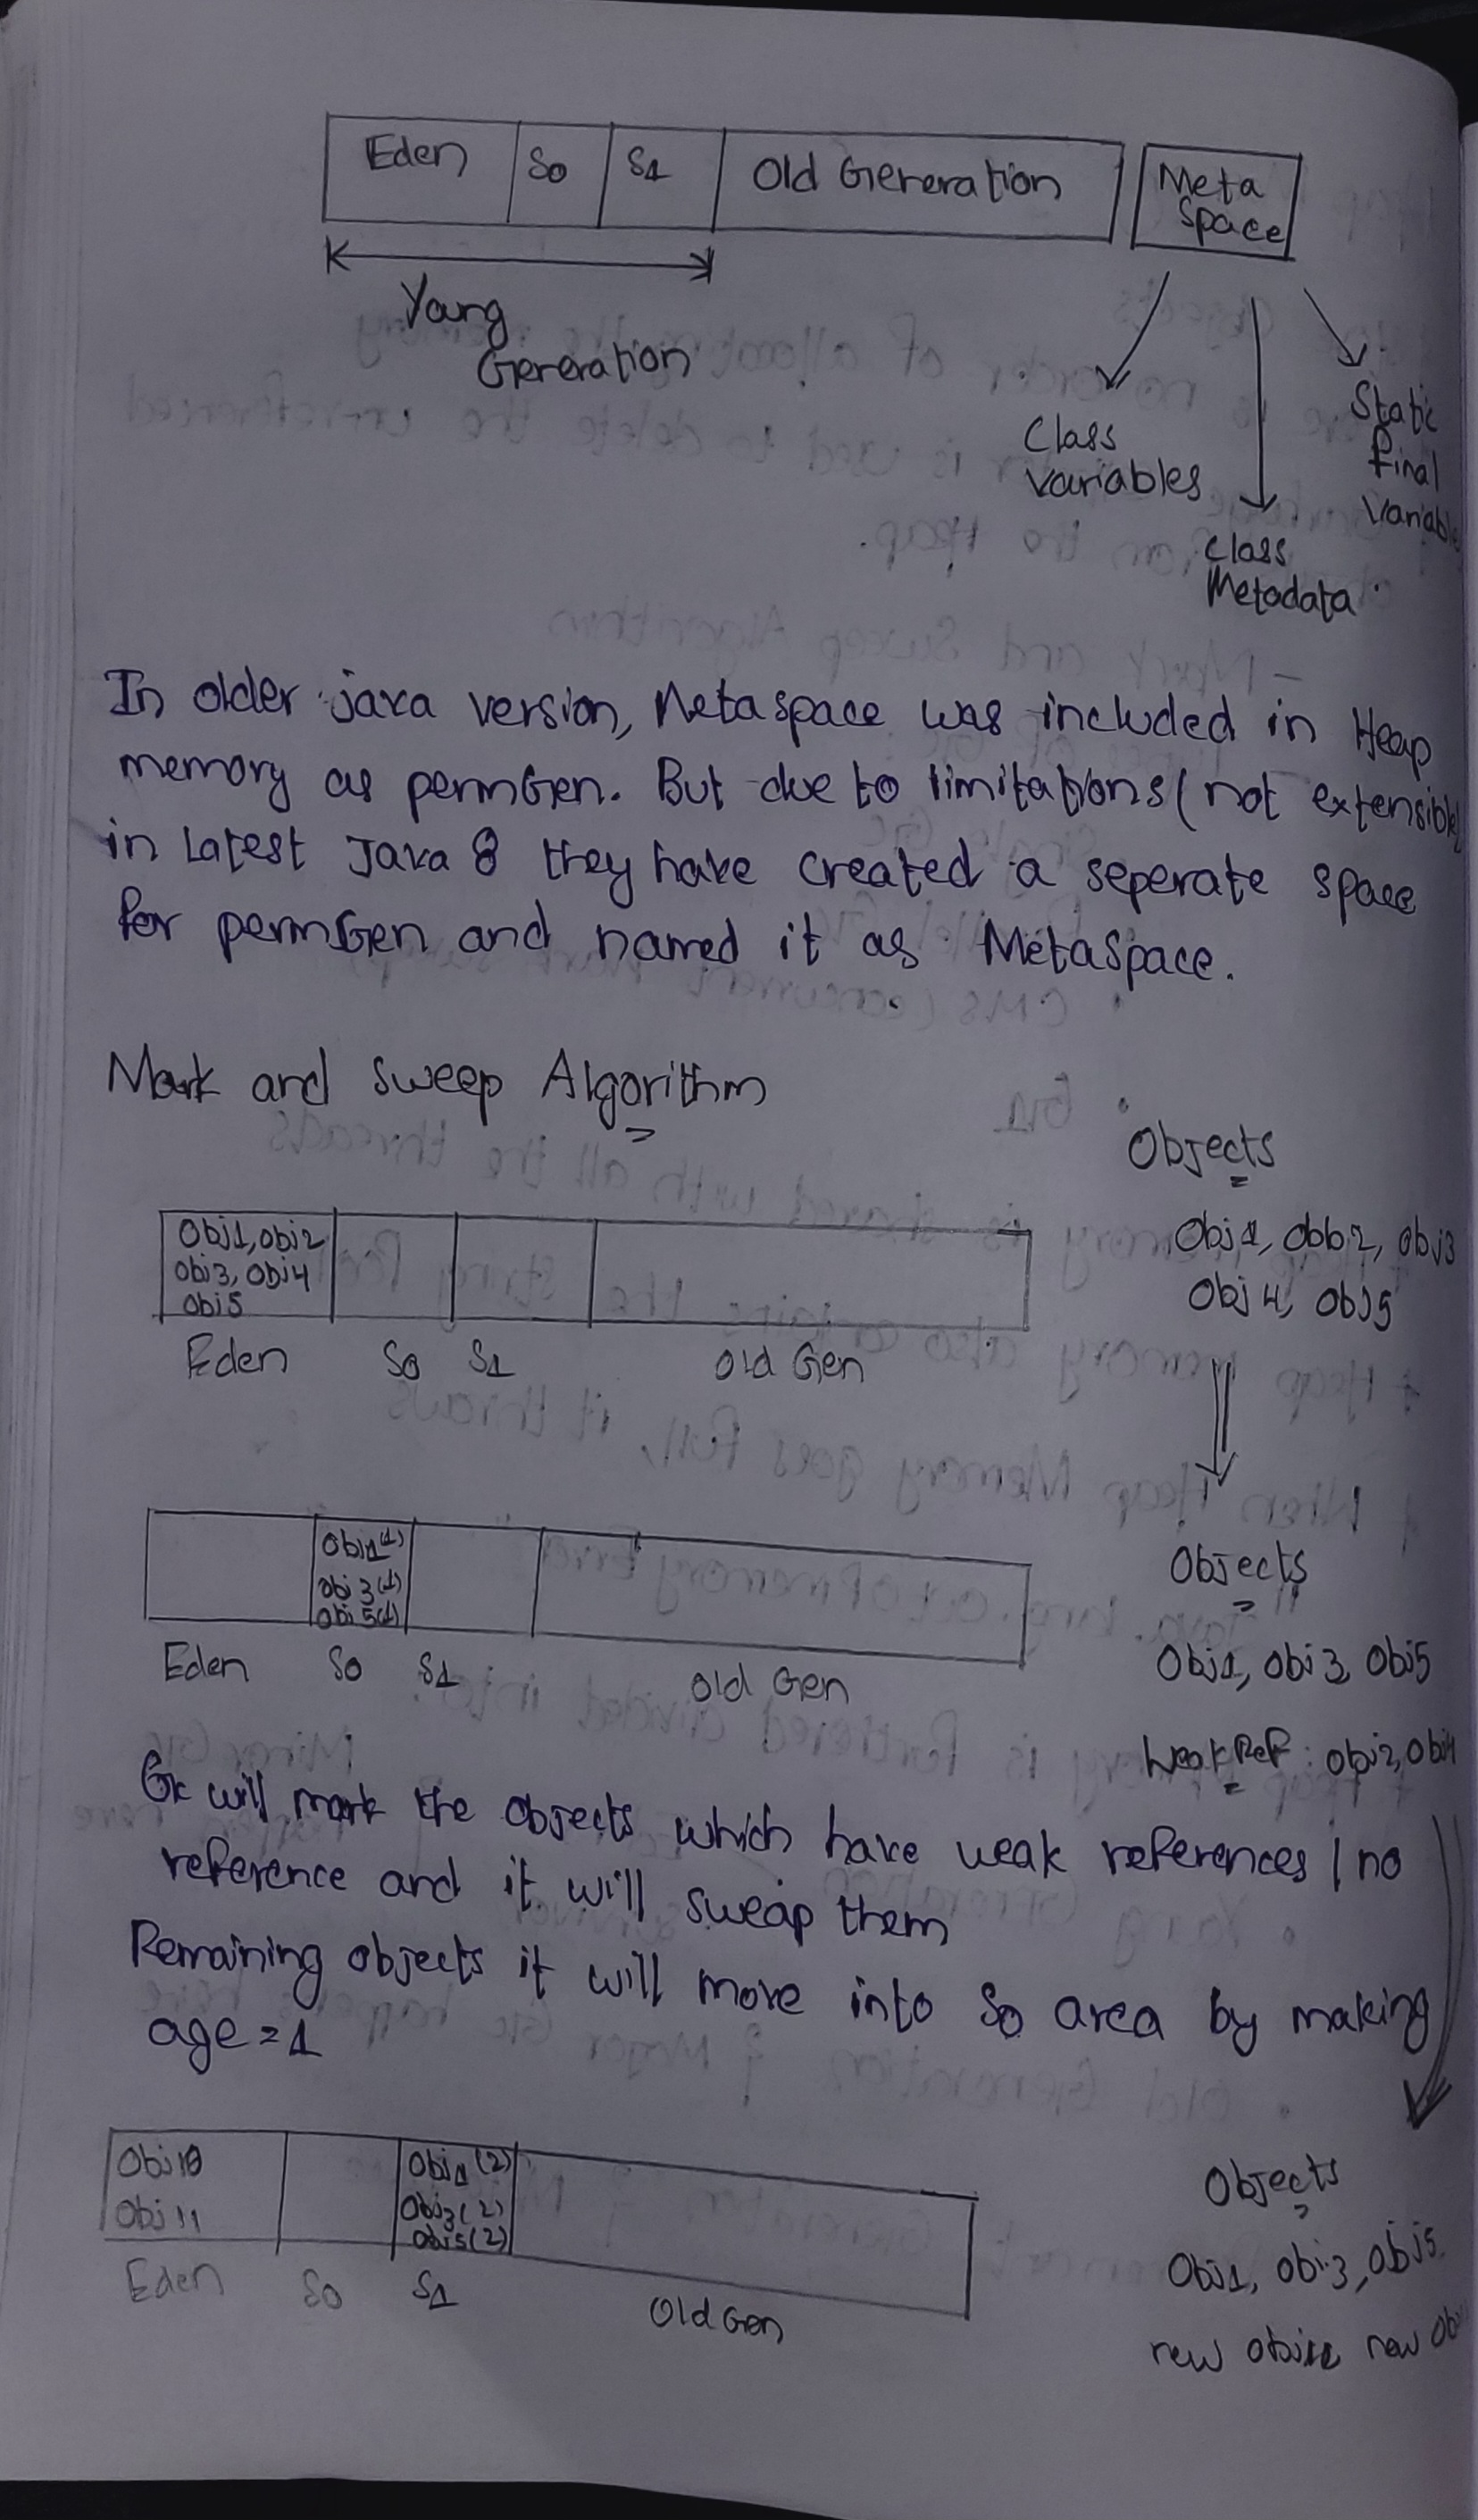 Eden S0 S1 Old Generation Meta
Space
Young
Generation
Class
Variables
Static
Final
Class
Metadata
In older java version, Metaspace was included in Heap
memory as permGen. But due to limitations (not extensible)
in Latest Java 8 they have created a seperate space
for permGen and named it as MetaSpace.
Mark and sweep Algorithm
Objects
Obj1, obj2
obj3, obj4
obj5
Obj1, Obb2, obj3
Obj4, obj5
Eden S0 S1 Old Gen
Obj1(1)
obj3(1)
obj5(1)
Objects
Eden S0 S1 Old Gen
Obj1, obj3, obj5
Weak Ref: obj2, obj4
GC will mark the objects which have weak references / no
reference and it will sweap them
Remaining objects it will move into S0 area by making
age=1
Obj10
Obj11
Obj1(2)
Obj3(2)
Obj5(2)
Objects
Eden S0 S1 Old Gen
Obj1, obj3, obj5
new new